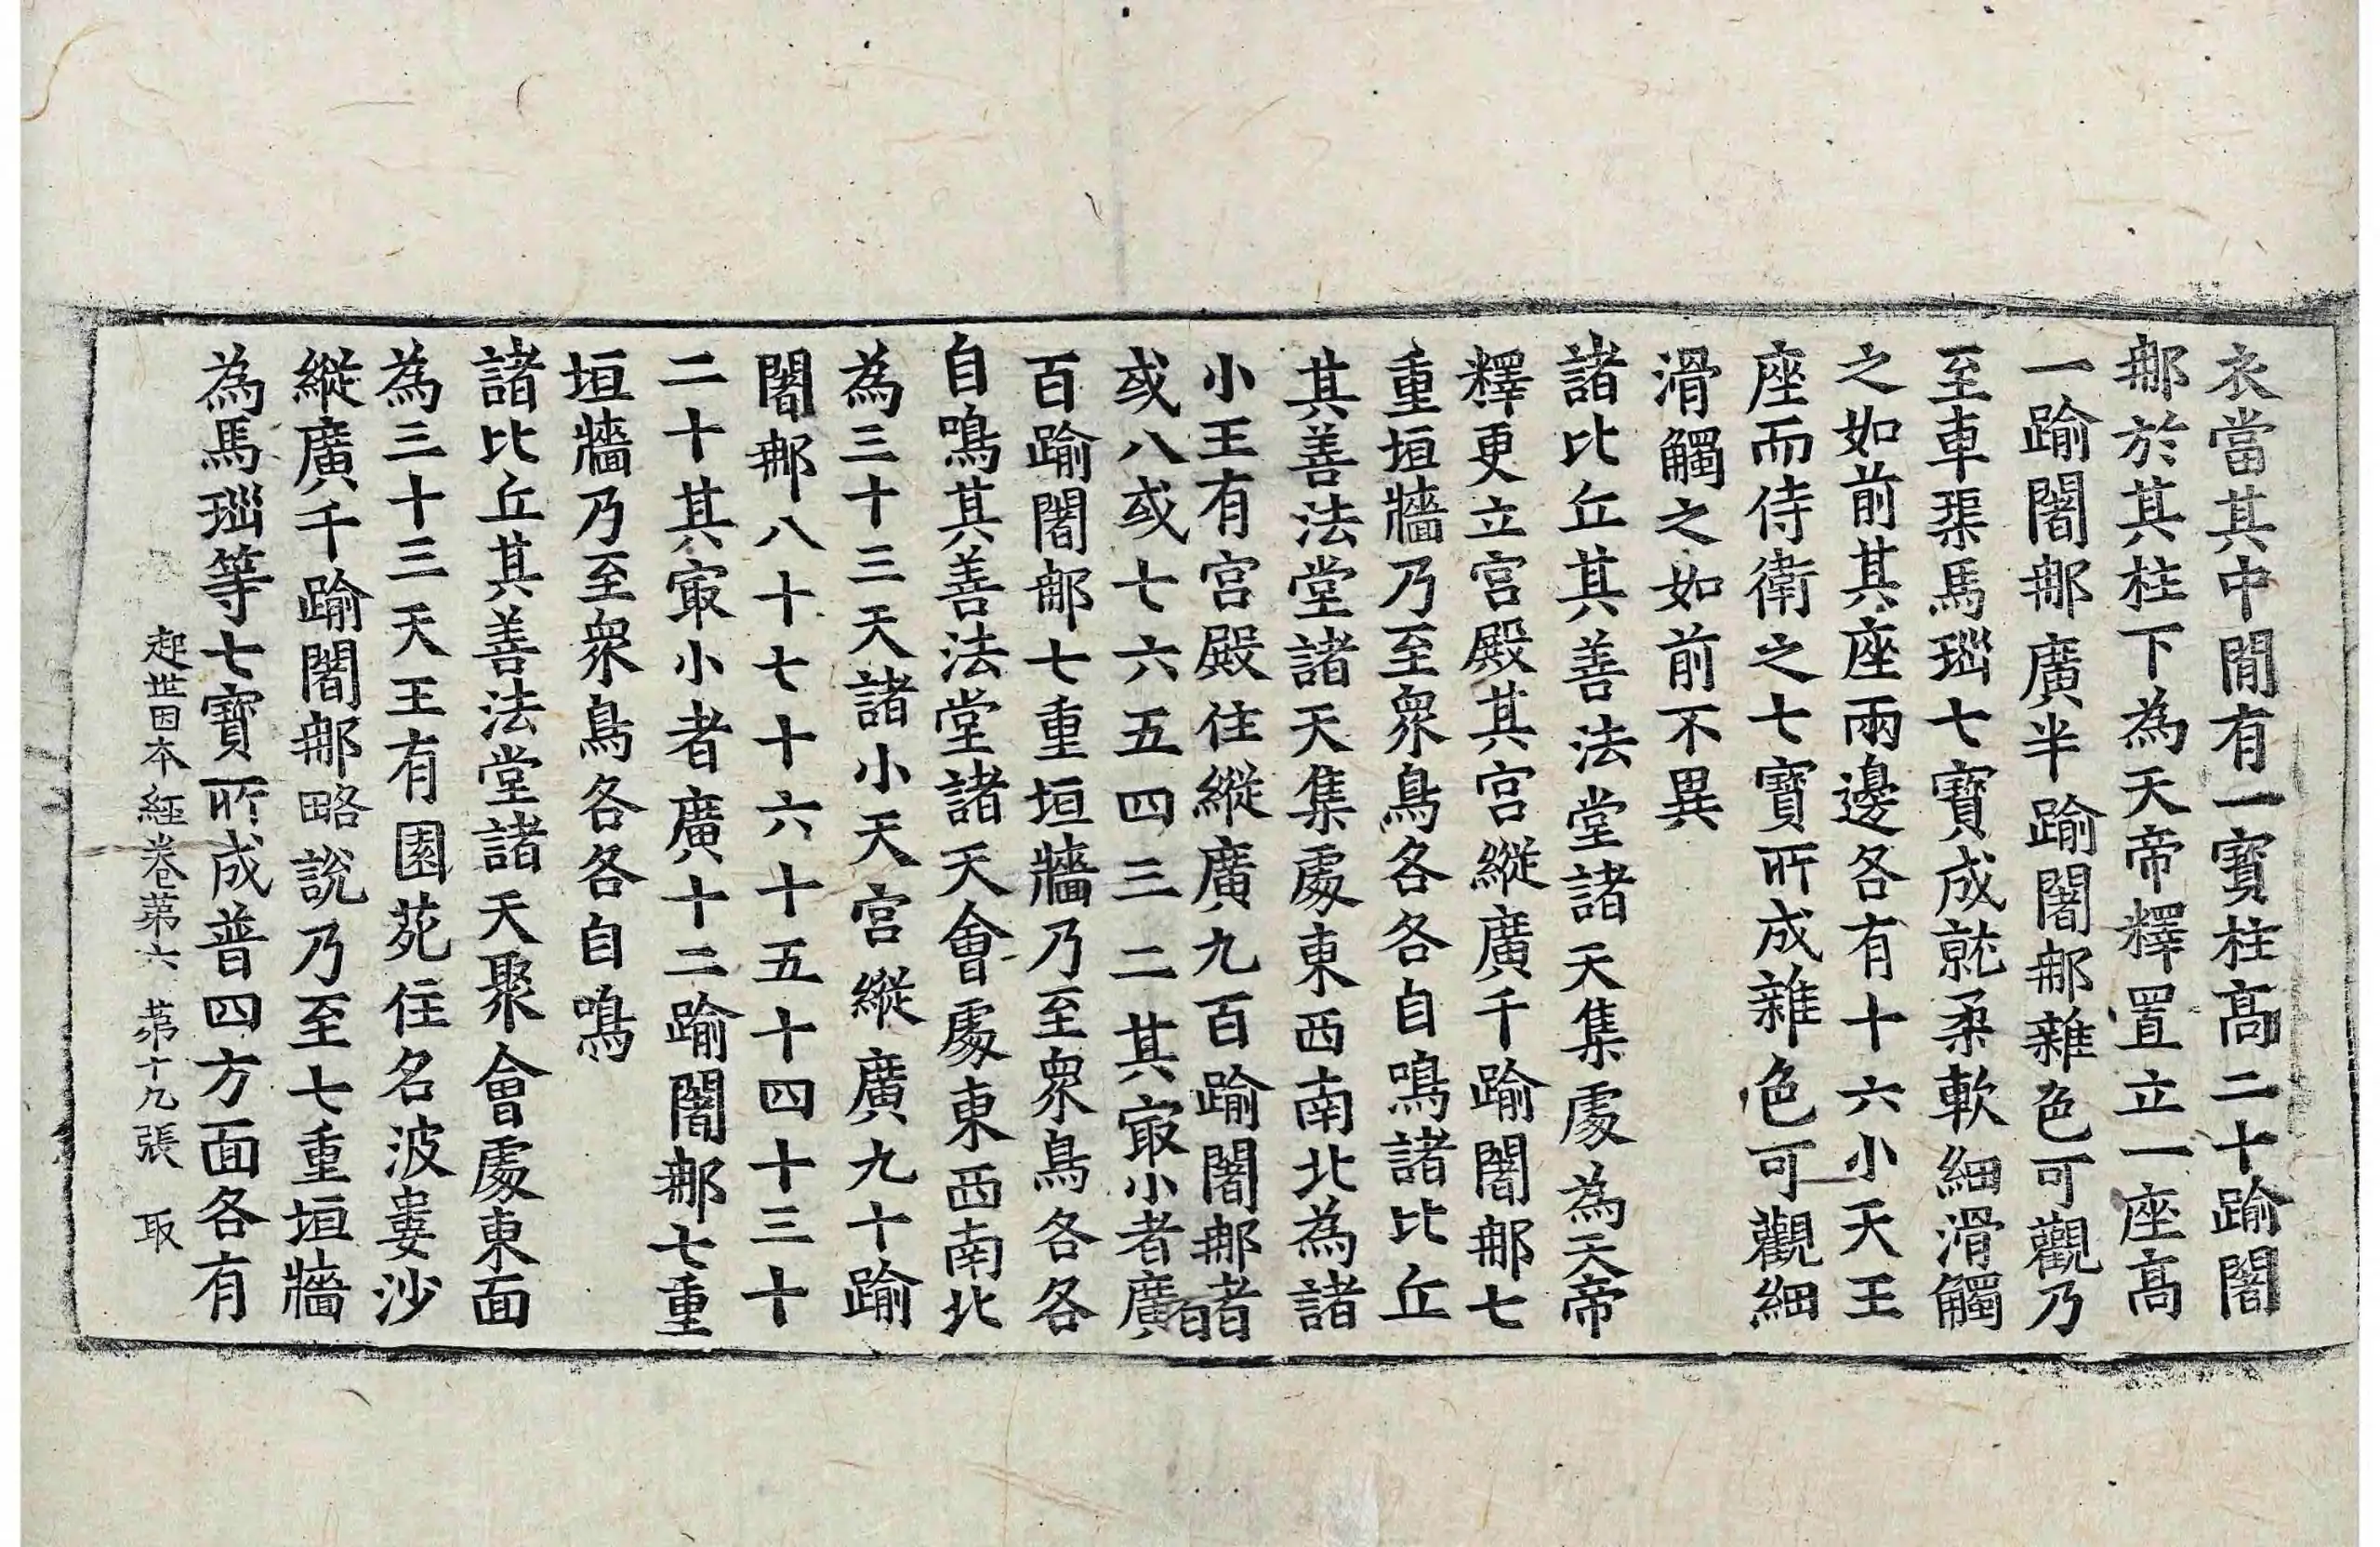 衣當其中閒有一寶柱高二十踰闍
㖠於其柱下為天帝釋置立一座高
一踰闍㖠廣半踰闍㖠雜色可觀乃
至車𤦲馬瑙七寶成就柔軟細滑觸
之如前其座兩邊各有十六小天王
座而侍衛之七寶所成雜色可觀細
滑觸之如前不異
諸比丘其善法堂諸天集處為天帝
釋更立宮殿其宮縱廣千踰闍㖠七
重垣牆乃至衆鳥各各自鳴諸比丘
其善法堂諸天集處東西南北為諸
小王有宮殿住縱廣九百踰闍㖠者
或八或七六五四三二其㝡小者廣百
百踰闍㖠七重垣牆乃至衆鳥各各
自鳴其善法堂諸天會處東西南北
為三十三天諸小天宮縱廣九十踰
闍㖠八十七十六十五十四十三十
二十其㝡小者廣十二踰闍㖠七重
垣牆乃至衆鳥各各自鳴
諸比丘其善法堂諸天聚會處東面
為三十三天王有園苑住名波婁沙
縱廣千踰闍㖠略說乃至七重垣牆
為馬瑙等七寶所成普四方面各有
起世因本經卷第六 第十九張 取